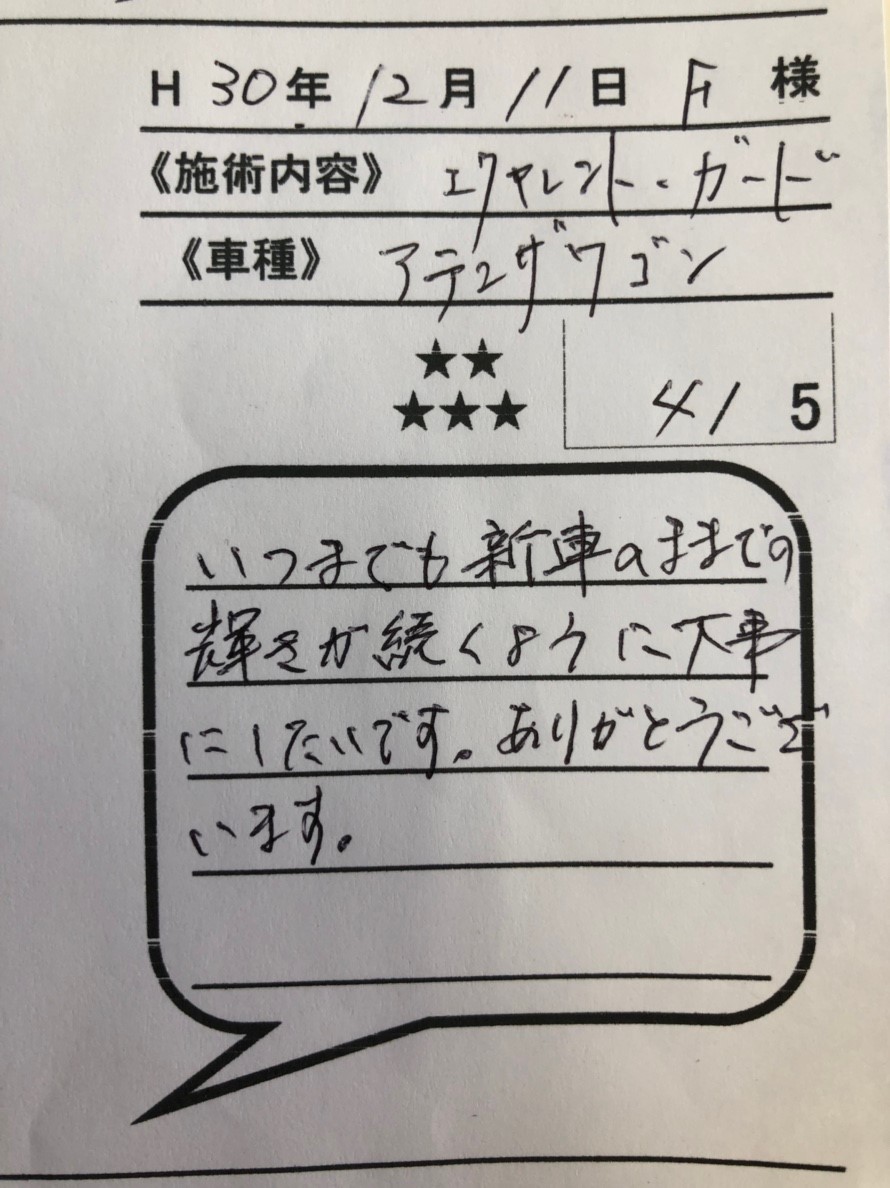 H 30年 12月 11日 F 様
《施術内容》 エクセレント・ガード
《車種》 アテンザワゴン
★★
★★★
4/5
いつまでも新車のままでの
輝きが続くように大事
にしたいです。ありがとうござ
います。